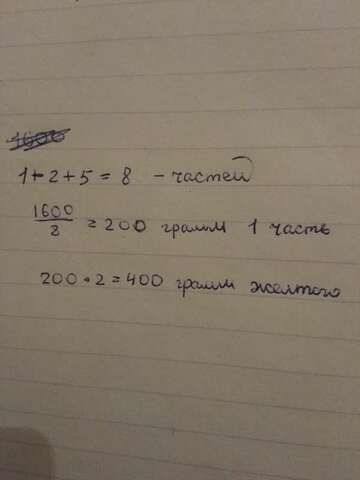 1600
1+2+5=8 - частей
1600
8
=200 грамм 1 часть
200 • 2 = 400 грамм желтого